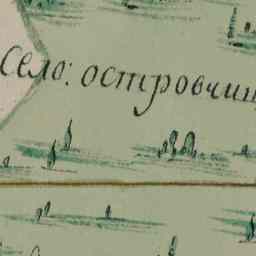 Село: островчин